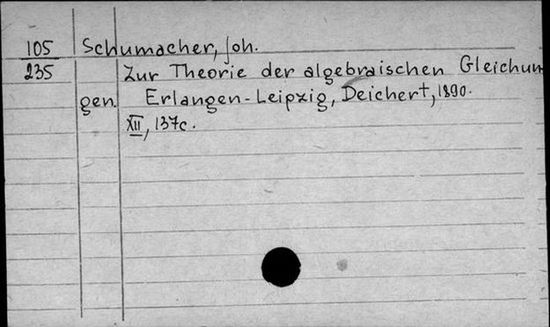 105 Schumacher, Joh.
235 Zur Theorie der algebraischen Gleichun
gen. Erlangen-Leipzig, Deichert, 1890.
XII, 137c.